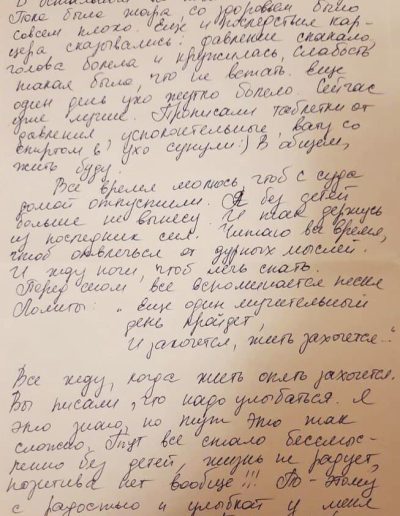 В остальном
Пока была жара, со здоровьем было
совсем плохо. Ещё и последствия кар-
цера сказывались: давление скакало,
голова болела и кружилась, слабость
такая была, что не встать. Ещё
один день ухо жутко болело. Сейчас
уже лучше. Прописали таблетки от
давления, успокоительные, вату со
спиртом в ухо сунули:) В общем,
жить буду.
Всё время молюсь, чтоб с суда
домой отпустили. Я без детей
больше не вынесу. И так держусь
из последних сил. Читаю всё время,
чтоб отвлечься от дурных мыслей.
И жду ночи, чтоб лечь спать.
Перед сном всё вспоминается песня
Лолиты: „ещё один мучительный
день пройдёт,
И захочется, жить захочется..."
Всё жду, когда жить опять захочется.
Вы писали, что надо улыбаться. Я
это знаю, но тут это так
сложно. Тут всё стало бессмыс-
ленно без детей, жизнь не радует,
позитива нет вообще!!! По-этому
с радостью и улыбкой у меня